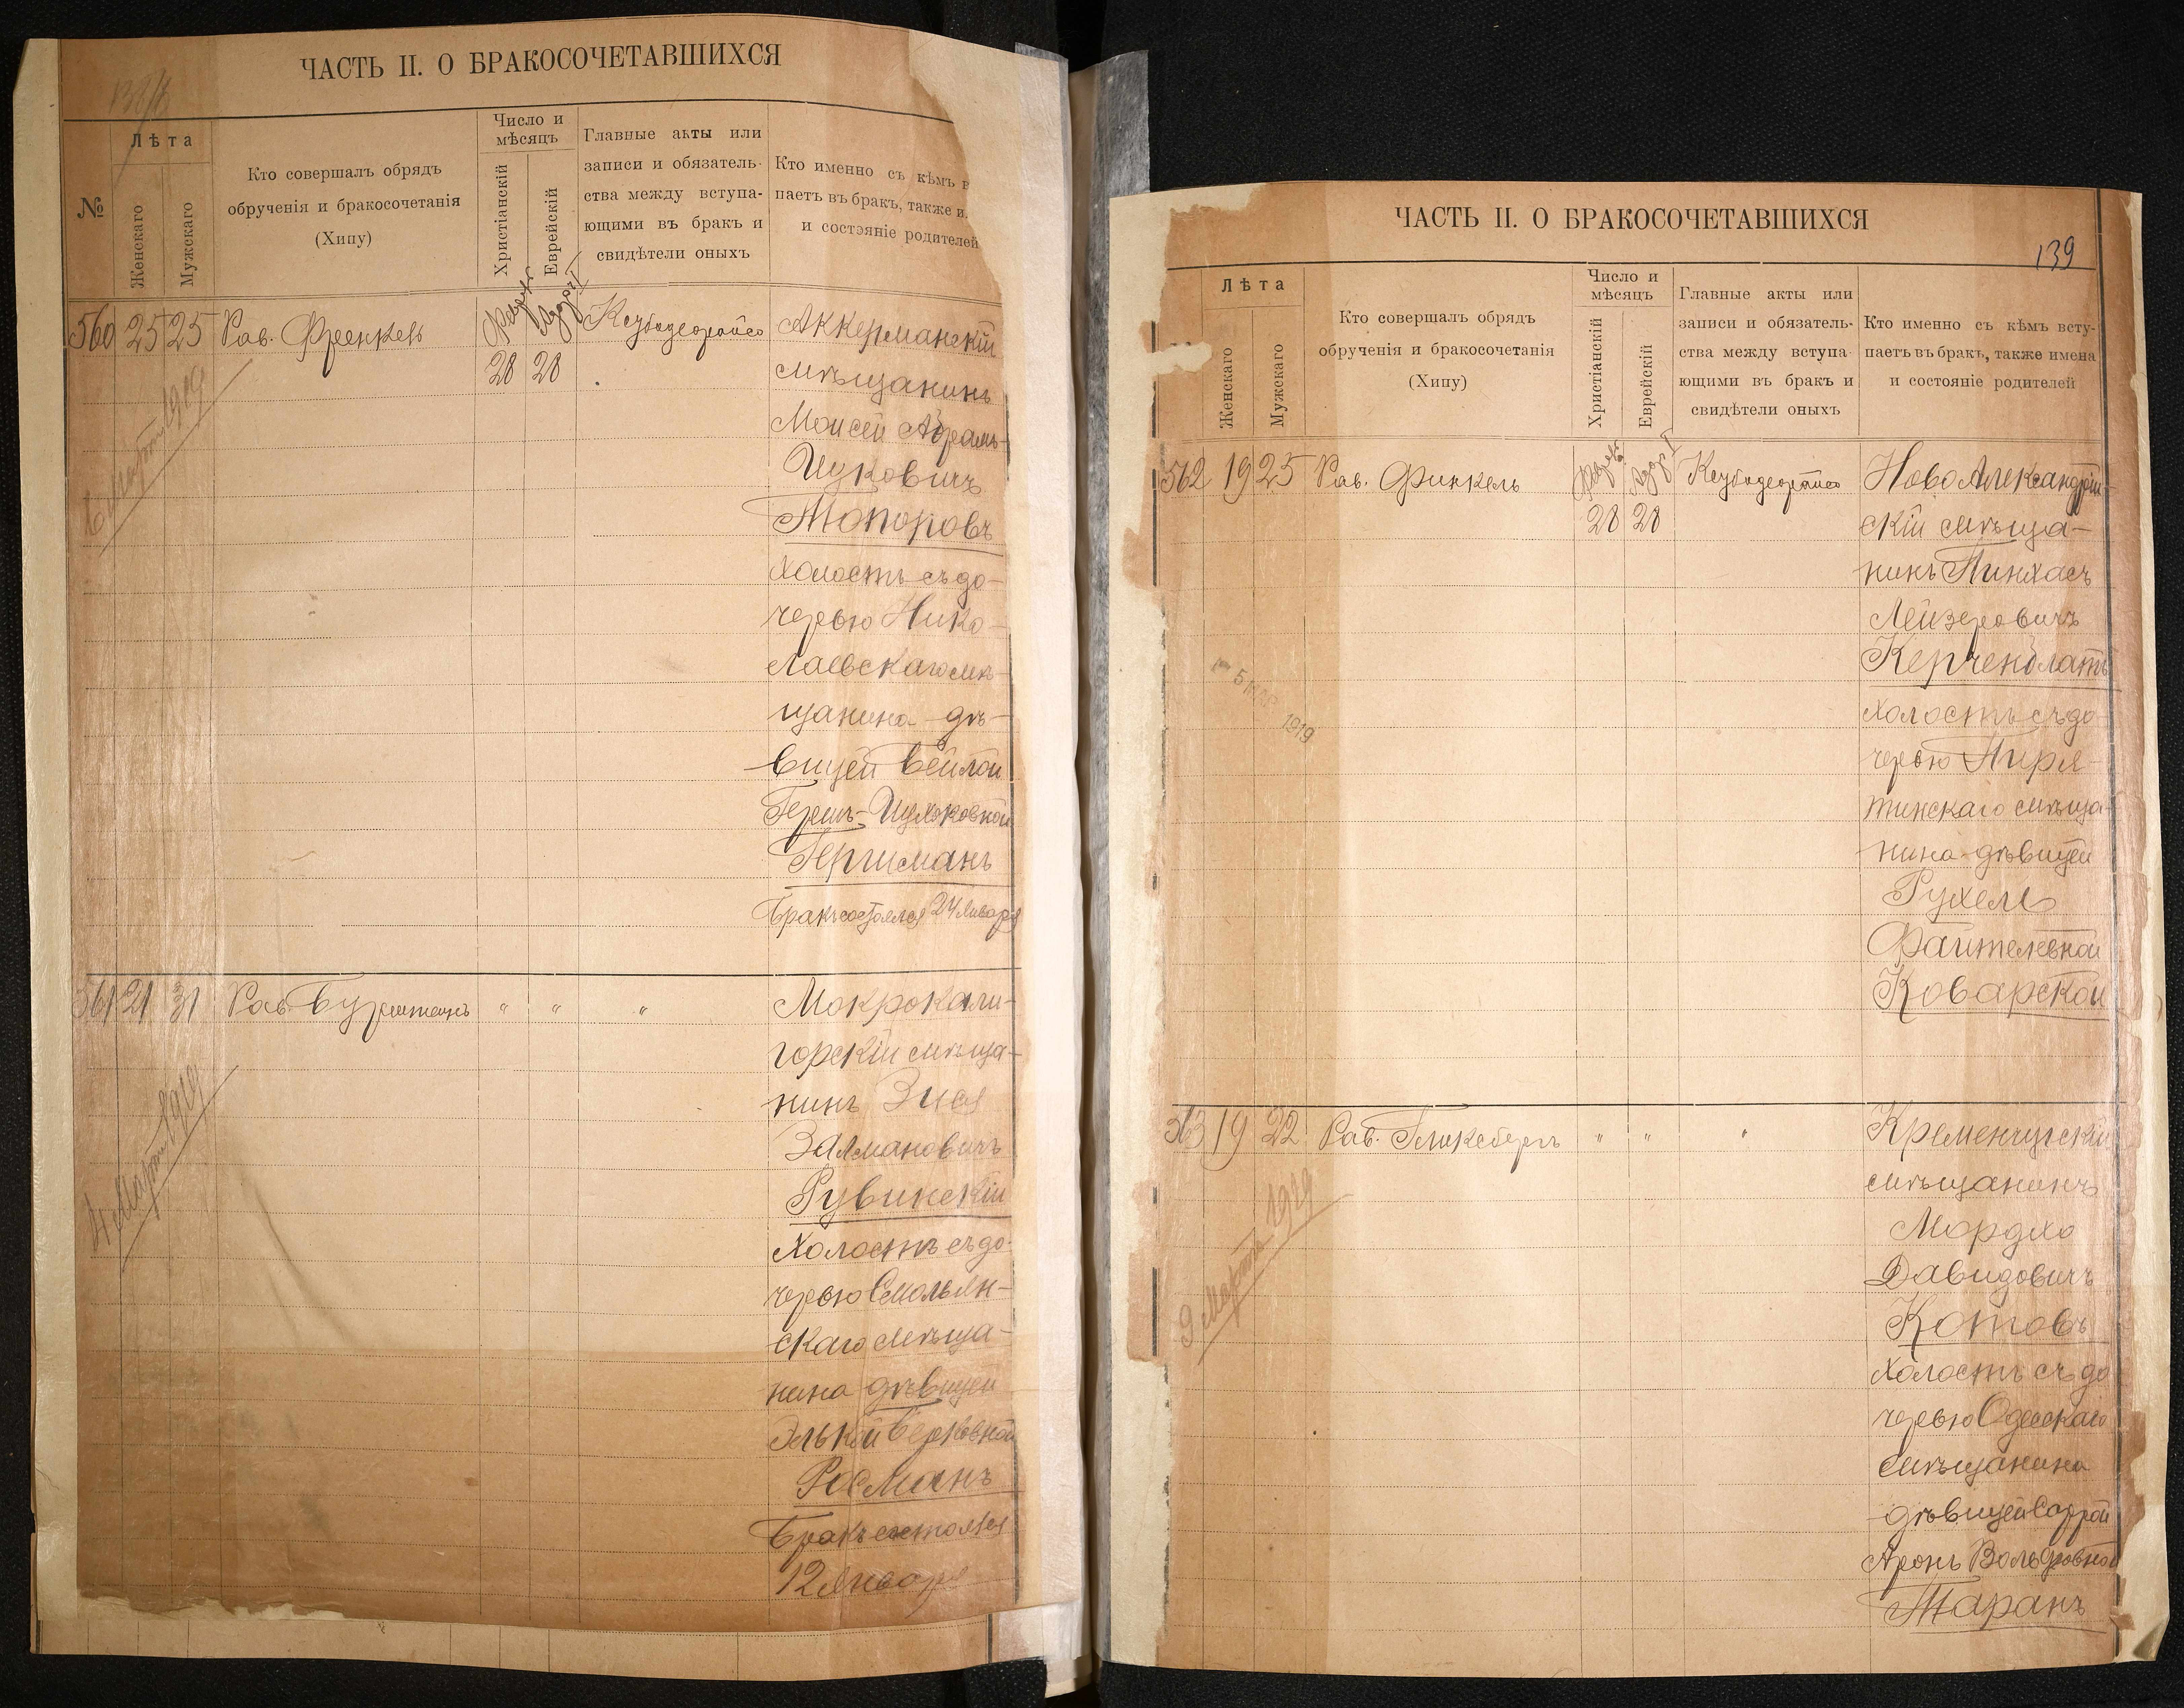 ЧАСТЬ II. О БРАКОСОЧЕТАВШИХСЯ
№
Лѣта
Женскаго
Мужскаго
Кто совершалъ обрядъ
обрученія и бракосочетанія
(Хипу)
Число и
мѣсяцъ
Христіанскій
Еврейскій
Главные акты или
записи и обязатель-
ства между вступа-
ющими въ бракъ и
свидѣтели оныхъ
Кто именно съ кѣмъ в
паетъ въ бракъ, также и
и состояніе родителей
560 25 25 Рав. Френкель
28 28
Аккерманскій
мѣщанинъ
Моисей Абрамъ-
Ицковичъ
Топоровъ
холостъ съ до-
черью Нико-
лаевскаго мѣ-
щанина дѣ-
вицей Бейлой
Гершъ-Ицковной
Гершманъ
Бракъ состоялся 24 Января
6 Марта 1919
561 21 31 Рав. Бурштейнъ " " "
Мокрокали-
горскій мѣща-
нинъ Зися
Залмановичъ
Рувинскій
холостъ съ до-
черью Смольян-
скаго мѣща-
нина дѣвицей
Элькой Берковной
Росманъ
Бракъ состоялся
12 Января
4 Марта 1919
ЧАСТЬ II. О БРАКОСОЧЕТАВШИХСЯ
139
Лѣта
Женскаго
Мужскаго
Кто совершалъ обрядъ
обрученія и бракосочетанія
(Хипу)
Число и
мѣсяцъ
Христіанскій
Еврейскій
Главные акты или
записи и обязатель-
ства между вступа-
ющими въ бракъ и
свидѣтели оныхъ
Кто именно съ кѣмъ всту-
паетъ въ бракъ, также имена
и состояніе родителей
562 19 25 Рав. Финкель
28 28
Ново Александрій-
скій мѣща-
нинъ Пинхасъ
Лейзеровичъ
Керченблатъ
холостъ съ до-
черью Пиря-
тинскаго мѣща-
нина дѣвицей
Рухелѣ
Файтелевной
Коварской
5 МАР 1919
563 19 22 Рав. Гликсбергъ " " "
Кременчугскій
мѣщанинъ
Мордхо
Давидовичъ
Котовъ
холостъ съ до
черью Одесскаго
мѣщанина
дѣвицей Саррой
Аронъ Вольфовной
Таранъ
9 Марта 1919